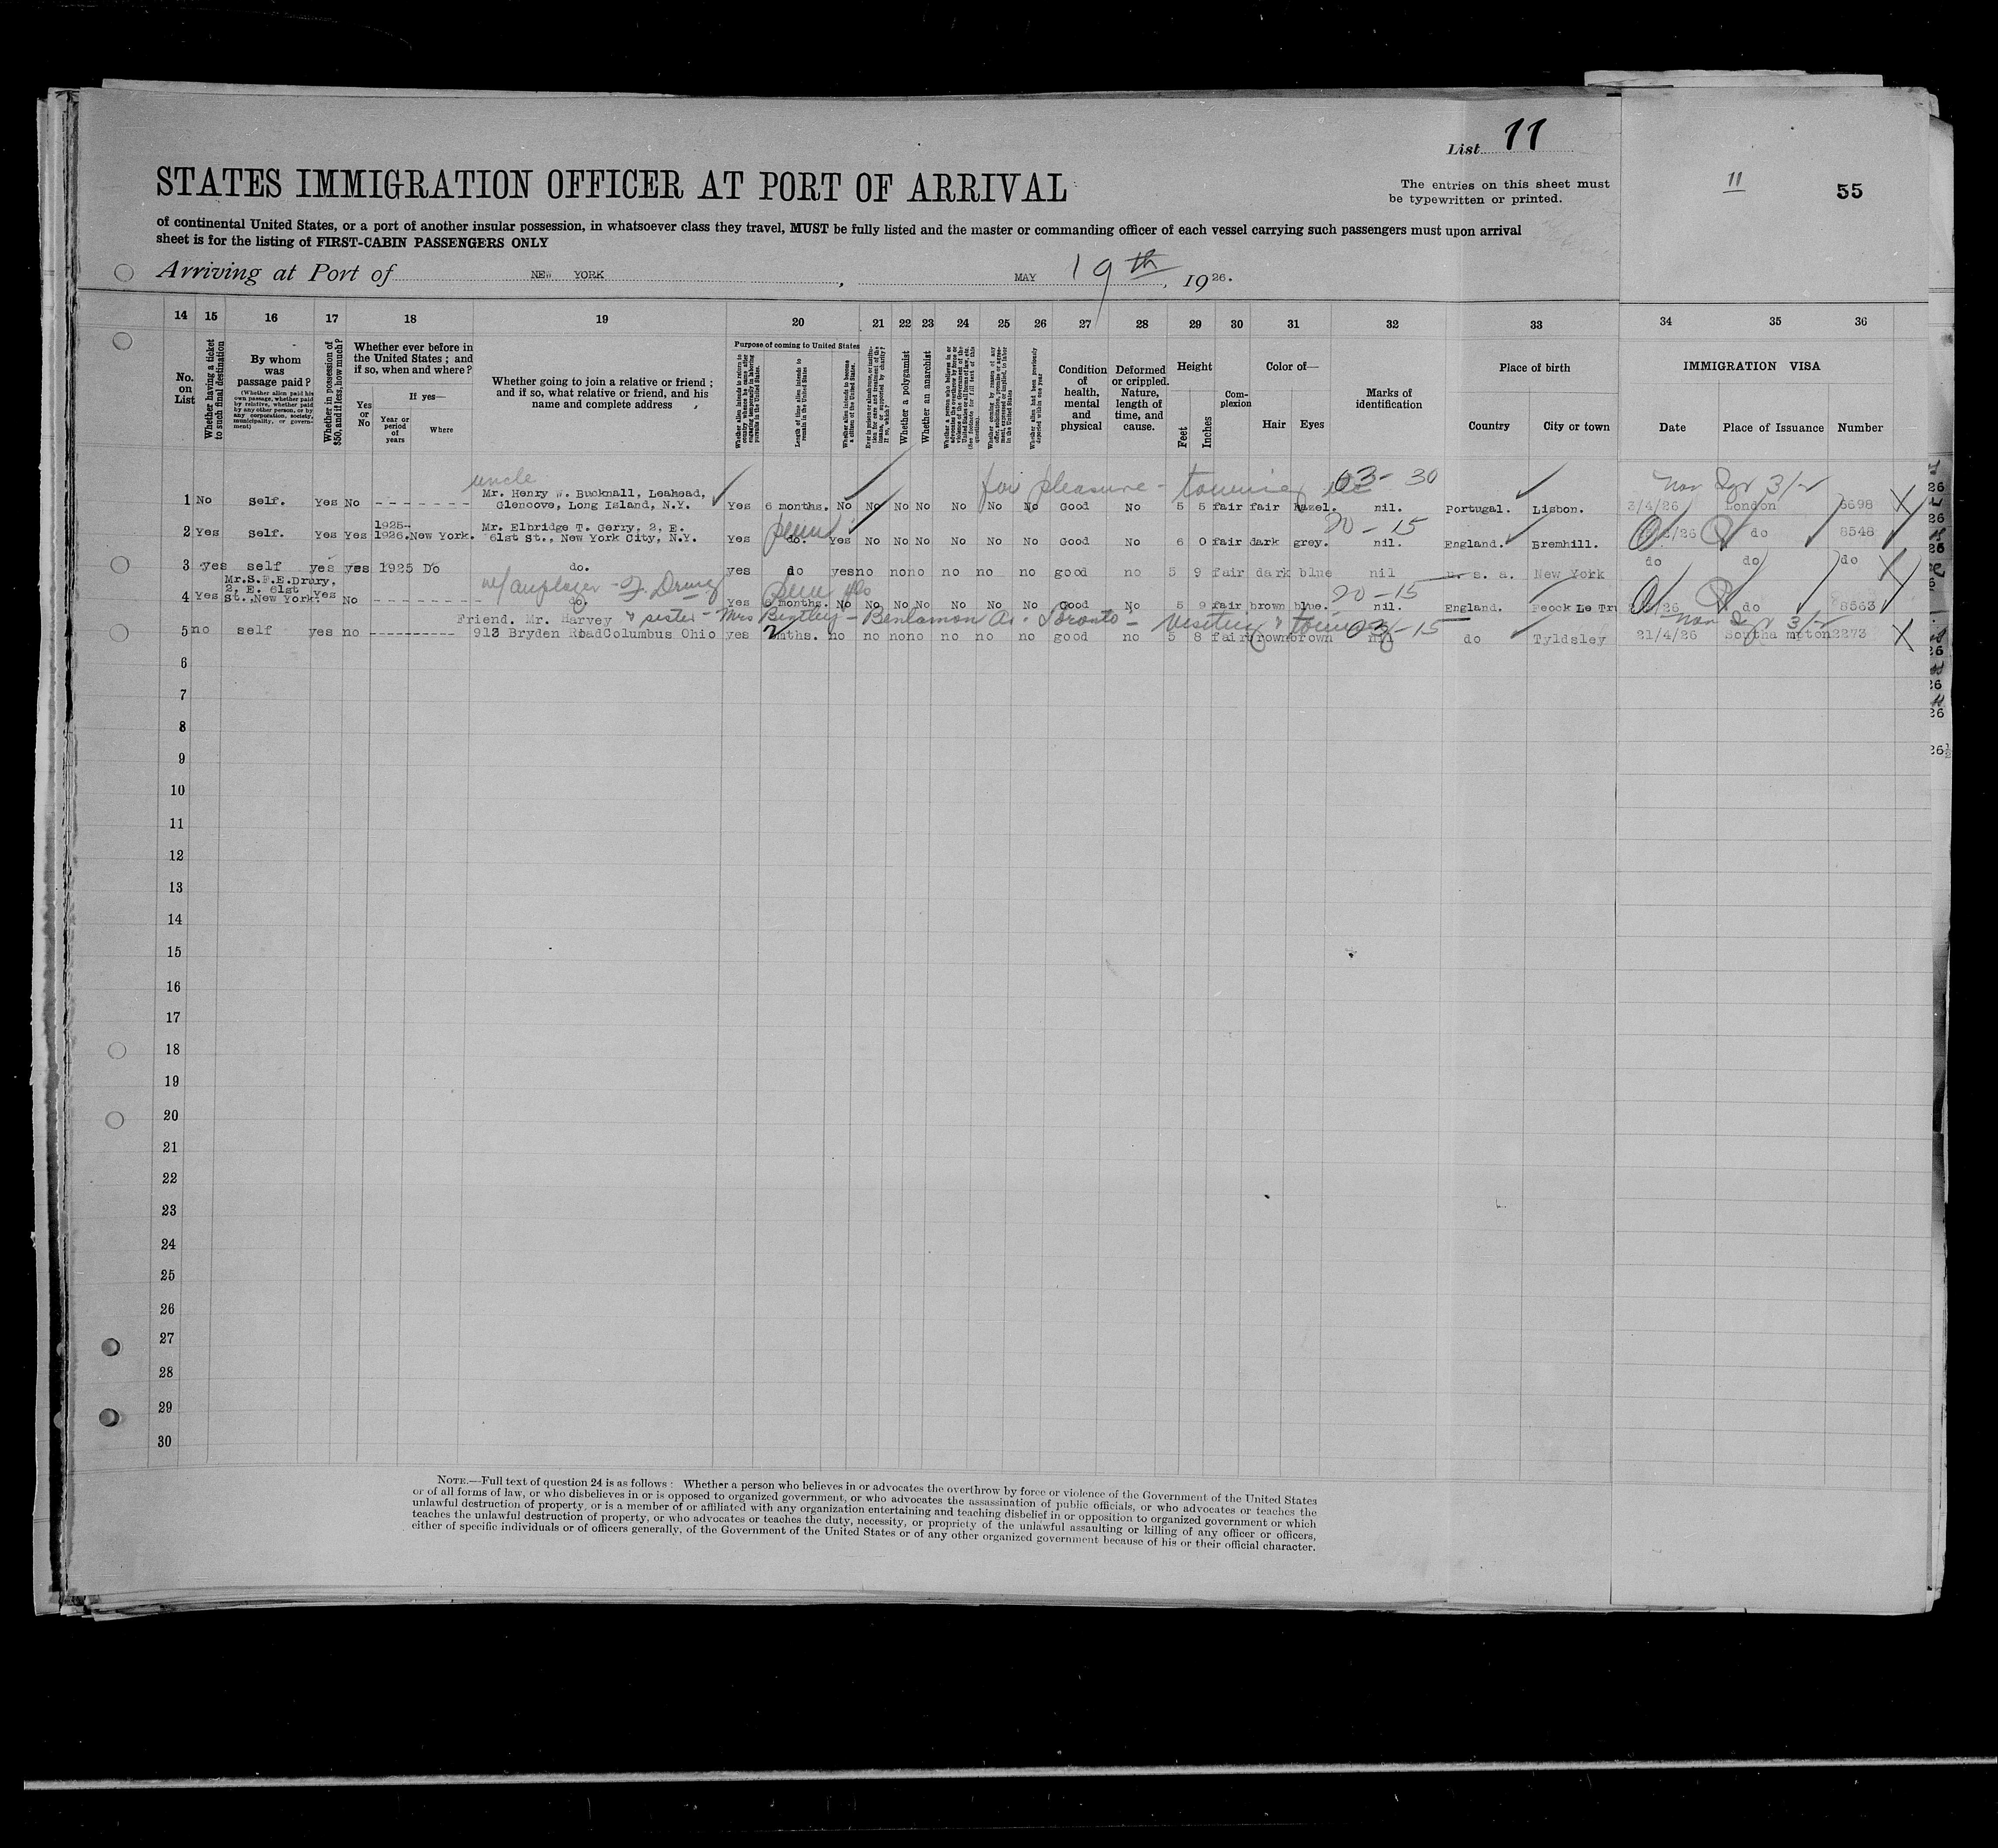 List 11
STATES IMMIGRATION OFFICER AT PORT OF ARRIVAL
The entries on this sheet must
be typewritten or printed.
11
55
of continental United States, or a port of another insular possession, in whatsoever class they travel, MUST be fully listed and the master or commanding officer of each vessel carrying such passengers must upon arrival
sheet is for the listing of FIRST-CABIN PASSENGERS ONLY
Arriving at Port of NEW YORK, MAY 19th, 1926.
14 15 16 17 18 19 20 21 22 23 24 25 26 27 28 29 30 31 32 33 34 35 36
No. on List
Whether having a ticket to such final destination
By whom was passage paid?
(Whether alien paid his own passage, whether paid by relative, whether paid by any other person, or by any corporation, society, municipality, or government)
Whether in possession of $50, and if less, how much?
Whether ever before in the United States; and if so, when and where?
Yes or No
If yes—
Year or period of years
Where
Whether going to join a relative or friend; and if so, what relative or friend, and his name and complete address
Purpose of coming to United States
Whether alien intends to return to country whence he came after engaging temporarily in laboring pursuits in the United States.
Length of time alien intends to remain in the United States
Whether alien intends to become a citizen of the United States.
Whether a polygamist
Whether an anarchist
Condition of health, mental and physical
Deformed or crippled. Nature, length of time, and cause.
Height
Feet
Inches
Complexion
Color of—
Hair
Eyes
Marks of identification
Place of birth
Country
City or town
IMMIGRATION VISA
Date
Place of Issuance
Number
uncle
for pleasure - touring
03- 30
1 No Self. Yes No - - - - - - Mr. Henry W. Bucknall, Leahead, Glencove, Long Island, N.Y. Yes 6 months. No No No No No No No Good No 5 5 fair fair hazel. nil. Portugal. Lisbon. 3/4/26 London 8698 X
20-15
2 Yes Self. Yes Yes 1925-1926. New York. Mr. Elbridge T. Gerry, 2, E. 61st St., New York City, N.Y. Yes do. Yes No No No No No No Good No 6 0 fair dark grey. nil. England. Bremhill. do 8548
3 yes self yes yes 1925 Do do. yes do yes no no no no no no good no 5 9 fair dark blue nil U. S. A. New York do do do
w/ employer - F. Drury
20-15
4 Yes Mr. S. F. E. Drury, 2, E. 61st St., New York. Yes No - - - - - - do. Yes 6 months. No No No No No No No Good No 5 9 fair brown blue. nil. England. Feock Le Tru do 8563
Friend. Mr. Harvey & sister - Mrs Bentley - Benlamon Av. Toronto - visiting & touring 03-15
5 no self yes no - - - - - - 913 Bryden Road Columbus Ohio yes 2 mths. no no no no no no no good no 5 8 fair brown brown nil do Tyldsley 21/4/26 Southampton 2273 X
6
7
8
9
10
11
12
13
14
15
16
17
18
19
20
21
22
23
24
25
26
27
28
29
30
NOTE.—Full text of question 24 is as follows: Whether a person who believes in or advocates the overthrow by force or violence of the Government of the United States
or of all forms of law, or who disbelieves in or is opposed to organized government, or who advocates the assassination of public officials, or who advocates or teaches the
unlawful destruction of property, or is a member of or affiliated with any organization entertaining and teaching disbelief in or opposition to organized government or which
teaches the unlawful destruction of property, or who advocates or teaches the duty, necessity, or propriety of the unlawful assaulting or killing of any officer or officers,
either of specific individuals or of officers generally, of the Government of the United States or of any other organized government because of his or their official character.